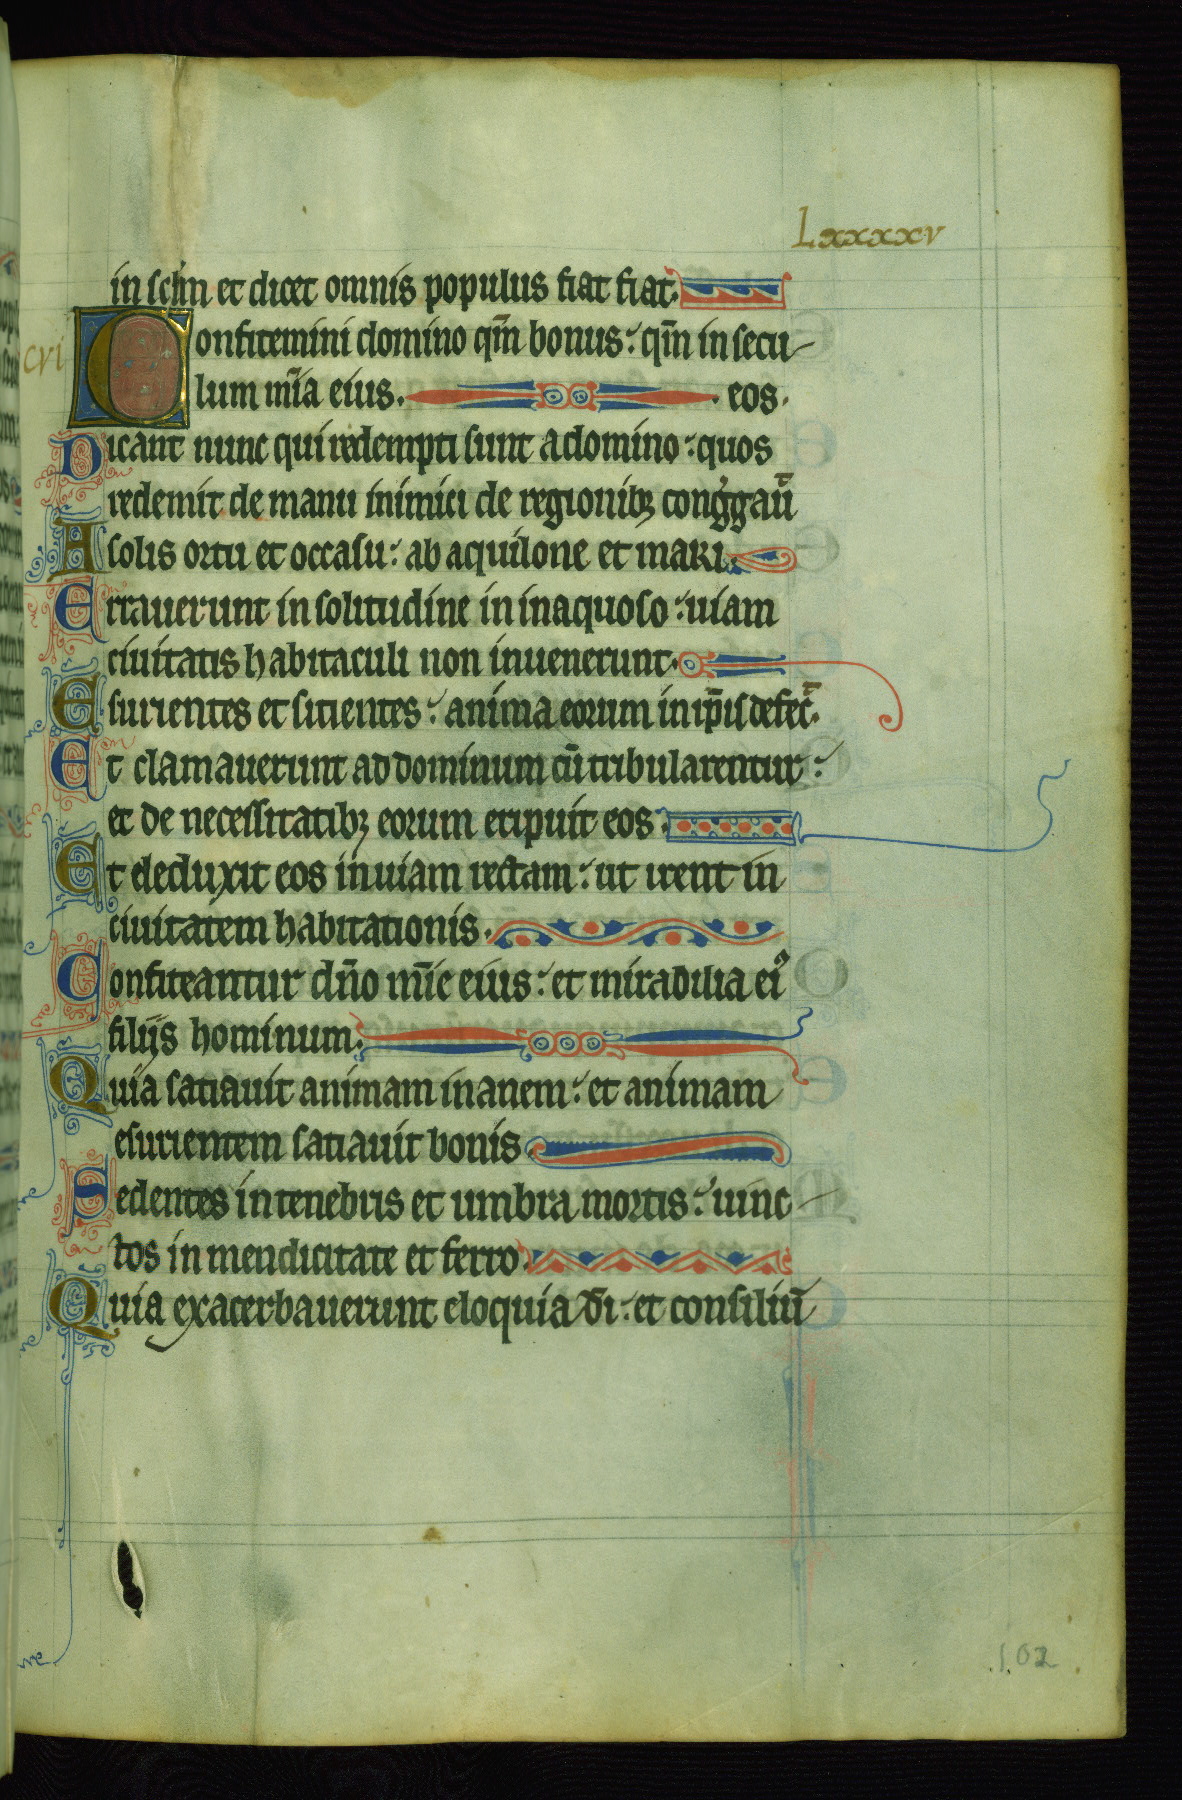 Lxxxxv
in sclm et dicet omnis populus fiat fiat.
cvi
Confitemini domino qm̄ bonus: qm̄ in secu
lum mīa eius. eos.
Dicant nunc qui redempti sunt a domino: quos
redemit de manu inimici de regionibꝫ congͥgaū
A solis ortu et occasu: ab aquilone et mari.
Errauerunt in solitudine in inaquoso: uiam
ciuitatis habitaculi non inuenerunt.
Esurientes et sitientes: anima eorum in ip̄is defec̄.
Et clamauerunt ad dominum cū tribularentur:
et de necessitatibꝫ eorum eripuit eos.
Et deduxit eos in uiam rectam: ut irent in
ciuitatem habitationis.
Confiteantur dn̄o mīe eius: et mirabilia eiꝰ
filijs hominum.
Quia satiauit animam inanem: et animam
esurientem satiauit bonis.
Sedentes in tenebris et umbra mortis: uinc
tos in mendicitate et ferro.
Quia exacerbauerunt eloquia dī: et consiliū
102